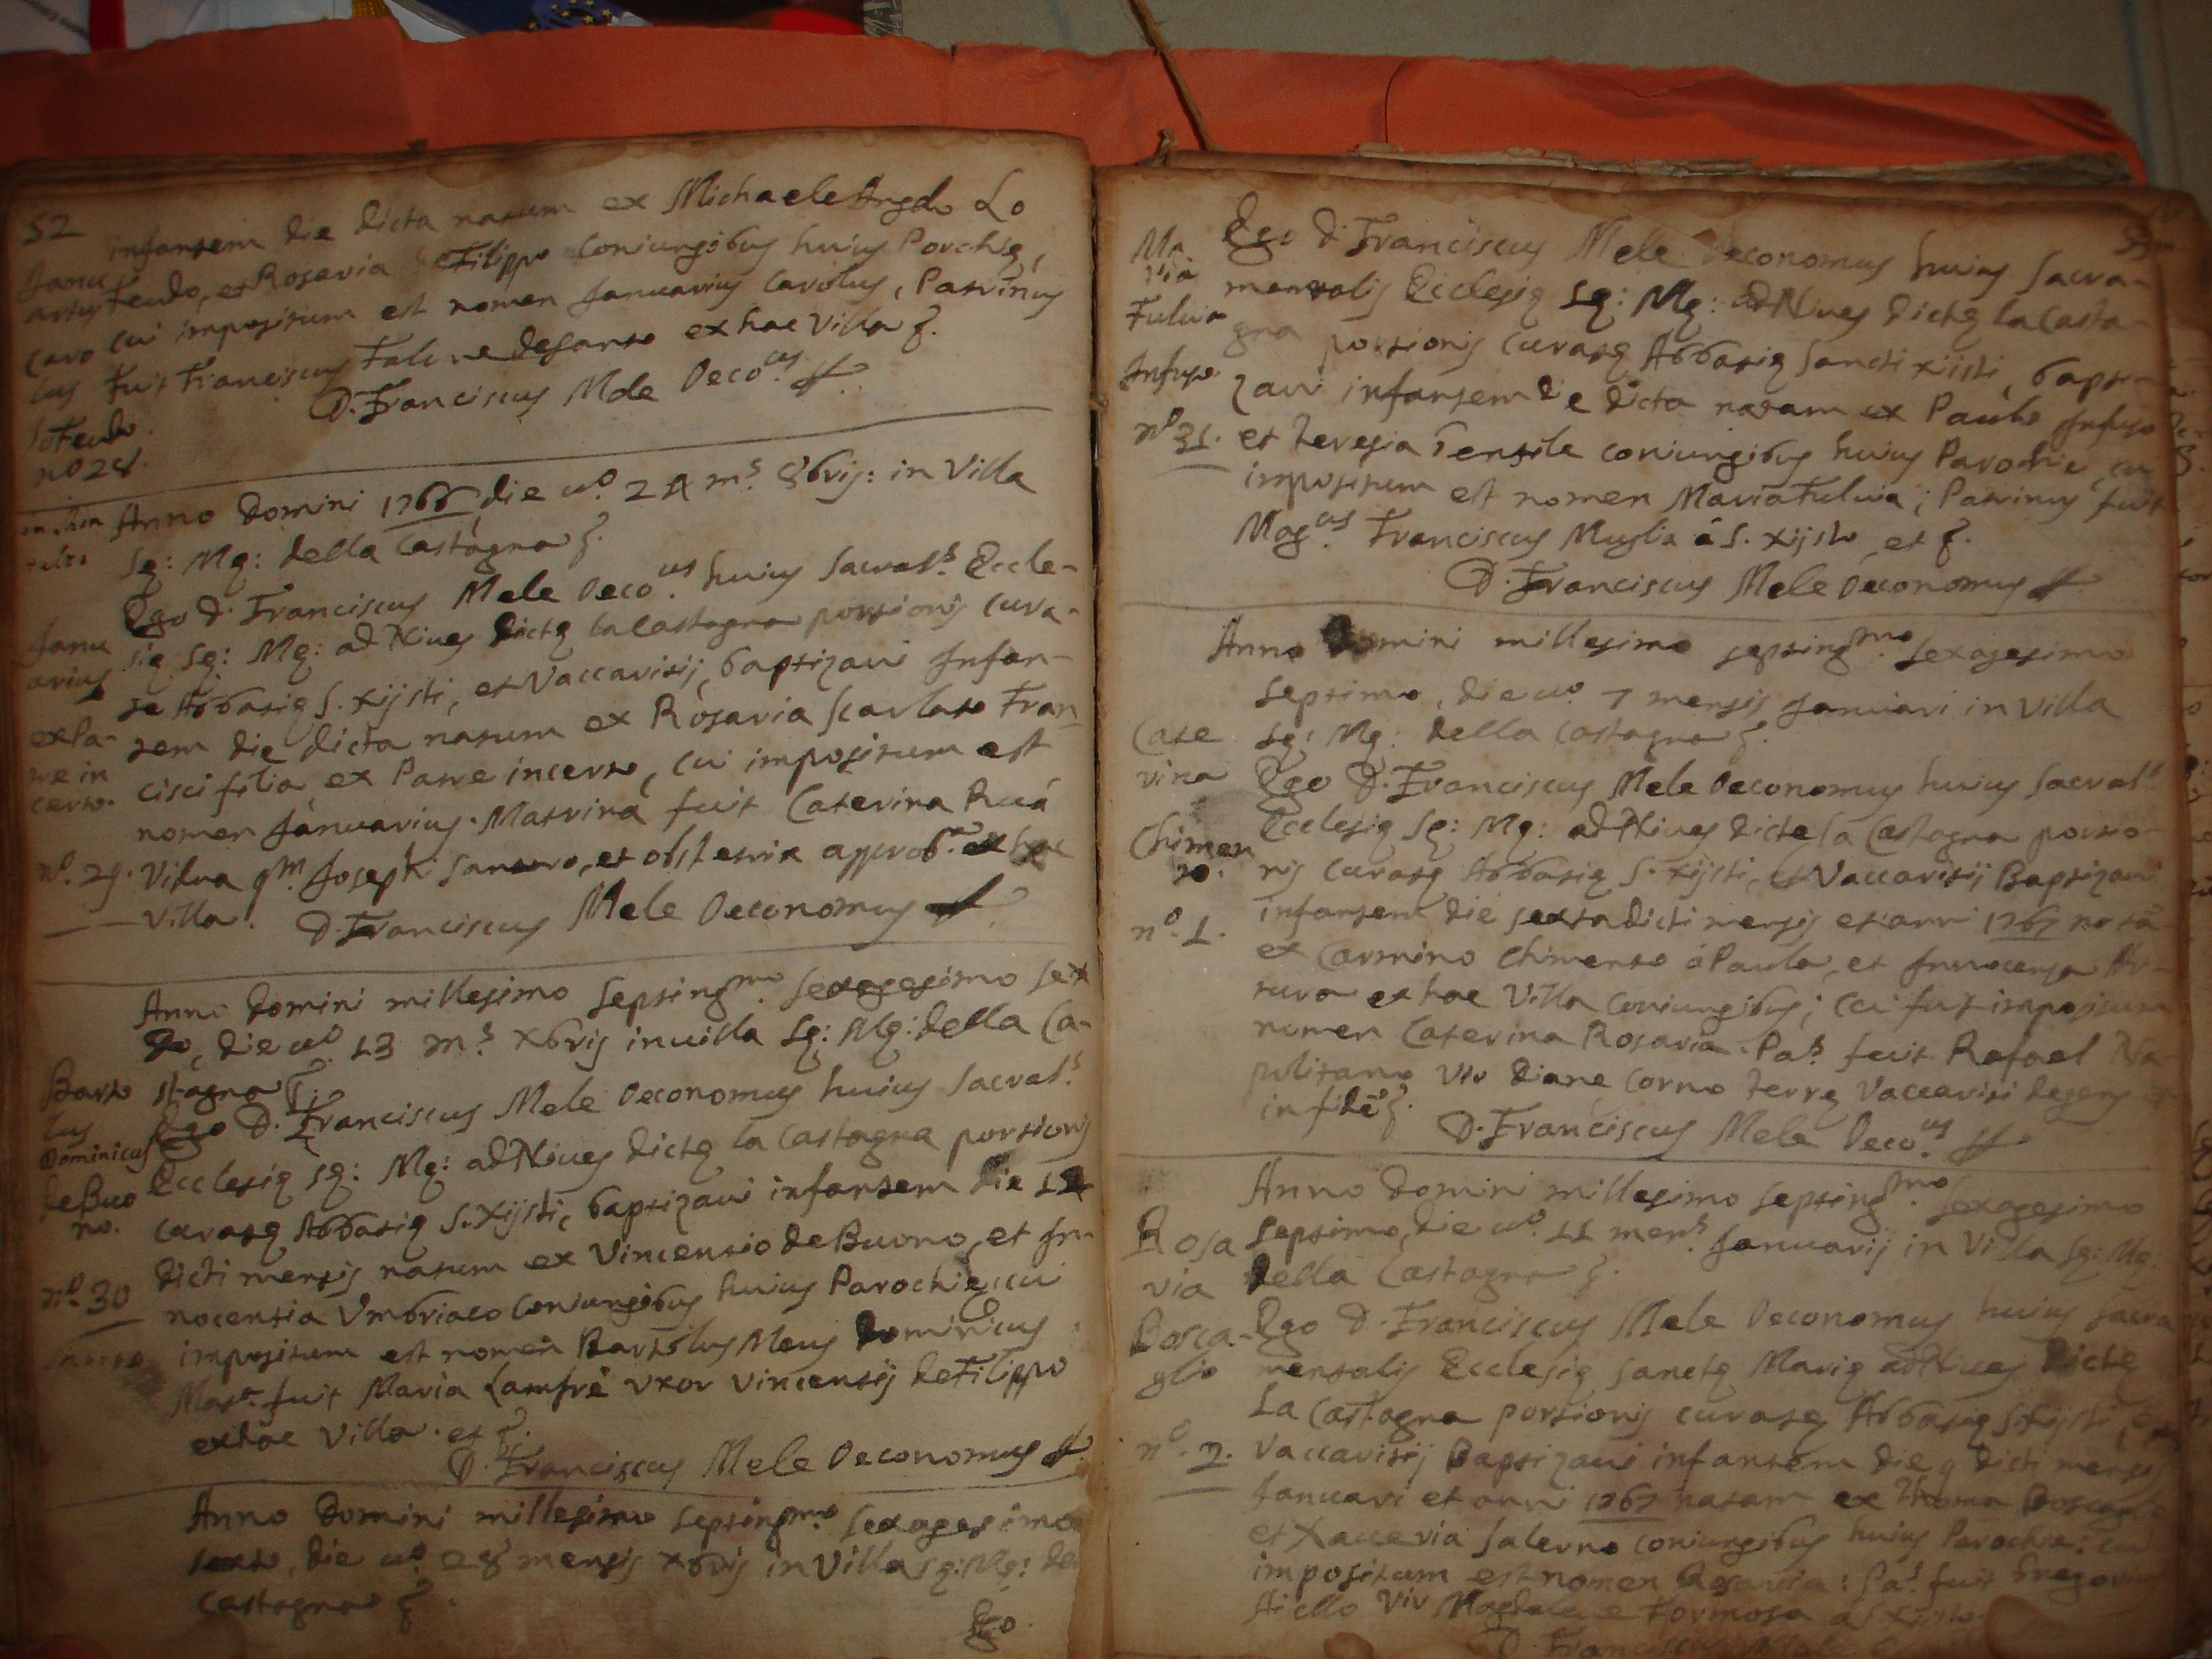 52
infantem die dicta natum ex Michaele Angelo Lo
Janu
arius Feudo, et Rosaria de Filippo Coniungibus huius Parochię,
Caro cui impositum est nomen Januarius Carolus, Patrinus
lus fuit Franciscus ex hac Villa
Lo Feudo D. Franciscus Mele Oeco.cus
no 28.
Anno Domini 1766 die vo. 24 ms. 8bris: in Villa
Sę: Mę: della Castagna
Ego D. Franciscus Mele Oeco.cus huius Sacral.s Eccle-
Janu
arius
się Sę: Mę: ad Nives dictę la Castagna portionis cura-
tę Abbatię S. Xijsti, et Vaccaritij, baptizavi Infan-
ex Pa-
tre in
certo.
tem die dicta natum ex Rosaria Scarlato Fran
cisci filia, ex Patre incerto, cui impositum est
nomen Januarius. Matrina fuit Caterina Ruá
no. 29. Vidua qm. Joseph Santoro, et obstetrix approb.a ex hac
Villa. D. Franciscus Mele Oeconomus
Anno Domini millesimo septing.mo sexagesimo sex
to, die vo. 13 ms. Xbris in villa Sę: Mę: della Ca-
stagna
Barto
lus
Dominicus
de Buo
no.
Ego D. Franciscus Mele Oeconomus huius Sacral.s
Ecclesię Sę: Mę: ad Nives dictę la Castagna portionis
curatę Abbatię S. Xijsti, baptizavi infantem die
dicti mensis natum ex Vincentio de Buono, et In-
no. 30 nocentia Umbriaco Coniungibus huius Parochię, cui
impositum est nomen Bartolus Meus Dominicus
Mat.a fuit Maria Lanfré uxor Vincentij de Filippo
ex hac Villa. et
D. Franciscus Mele Oeconomus
Anno Domini millesimo septing.mo sexagesimo
sexto, die vo. 28 mensis Xbris in Villa Sę: Mę: de
Castagna
Ego
Ma
ria
Fulvia
Infuso
no 31.
Ego D. Franciscus Mele Oeconomus huius Sacra-
mentalis Ecclesię Sę: Mę: ad Nives dictę la Casta-
gna portionis Curatę Abbatię Sancti Xijsti, bapti-
zavi infantem die dicta natam ex Paulo Infuso
et Teresia Pensile coniungibus huius Parochie, cu
impositum est nomen Maria Fulvia; Patrinus fuit
Mag.cus Franciscus Muglia á S. Xijsto et
D. Franciscus Mele Oeconomus
Anno Domini millesimo septing.mo sexagesimo
septimo, die vo 7 mensis Januari in Villa
Sę: Mę: della Castagna
Cate
rina
Chimen
to.
no. 1.
Ego D. Franciscus Mele Oeconomus huius Sacral.s
Ecclesię Sę: Mę: ad Nives dicte la Castagna portio-
nis Curatę Abbatię S. Xijsti, et Vaccaritij Baptizavi
infantem die sexta dicti mensis et anni 1767 natã
ex Carmino Chimento á Paula, et Innocenza Ar-
tura ex hac Villa coniungibus; cui fuit impositum
nomen Caterina Rosaria. Pa.s fuit Rafael Na-
politano Vir Diane Corno Terrę Vaccarizi degens
in fidẽ
D. Franciscus Mele Oeco.us
Anno Domini millesimo septing.mo sexagesimo
septimo, die vo. 11 mens. Januarij in Villa Sę: Mę
della Castagna
Rosa
ria
Bosca-
glia
no. 2.
Ego D. Franciscus Mele Oeconomus huius Sacra
mentalis Ecclesię Sanctę Marię ad Nives dictę
La Castagna portionis curatę Abbatię S. Xijsti, et
Vaccaritij Baptizavi infantem die 9 dicti mensis
Januari et anni 1767 natam ex Thoma
et Xaveria Salerno coniungibus huius Parochie; cu
impositum est nomen Rosaria: Pa.s fuit Gregorius
Aiello Vir Formosa á S. Xijsto
D. Franciscus